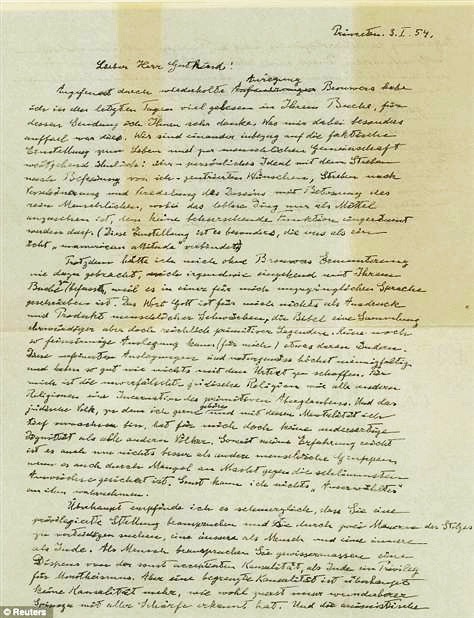 Princeton. 3. I. 54.
Lieber Herr Gutkind!
Anregung
Angefeuert durch wiederholte Brouwers habe
ich in den letzten Tagen viel gelesen in Ihrem Buche, für
dessen Sendung ich Ihnen sehr danke. Was mir dabei besonders
auffiel war dies. Wir sind einander inbezug auf die faktische
Einstellung zum Leben und zur menschlichen Gemeinschaft
weitgehend ähnlich: persönliches Ideal mit dem Streben
nach Befreiung von ich-zentrierten Wünschen, Streben nach
Verschönerung und Veredelung des Daseins mit Betonung des
rein Menschlichen, wobei das leblose Ding nur als Mittel
anzusehen ist, dem keine beherrschende Funktion eingeräumt
werden darf. (Diese Einstellung ist es besonders, die uns als ein
echt "unamerican attitude" verbindet)
Trotzdem hätte ich mich ohne Brouwers Ermunterung
nie dazu gebracht, mich irgendwie eingehend mit Ihrem
Buche zu befassen, weil es in einer für mich unzugänglichen Sprache
geschrieben ist. Das Wort Gott ist für mich nichts als Ausdruck
und Produkt menschlicher Schwächen, die Bibel eine Sammlung
ehrwürdiger aber doch reichlich primitiver Legenden. Keine noch
so feinsinnige Auslegung kann (für mich) etwas daran ändern.
Diese verfeinerten Auslegungen sind naturgemäss höchst mannigfaltig
und haben so gut wie nichts mit dem Urtext zu schaffen. Für
mich ist die unverfälschte jüdische Religion wie alle anderen
Religionen eine Incarnation des primitiven Aberglaubens. Und das
jüdische Volk, zu dem ich gerne gehöre und mit dessen Mentalität ich
tief verwachsen bin, hat für mich doch keine andersartige
Dignität als alle anderen Völker. Soweit meine Erfahrung reicht
ist es auch um nichts besser als andere menschliche Gruppen
wenn es auch durch Mangel an Macht gegen die schlimmsten
Auswüchse gesichert ist. Sonst kann ich nichts "Auserwähltes"
an ihm wahrnehmen.
Überhaupt empfinde ich es schmerzlich, dass Sie eine
privilegierte Stellung beanspruchen und sie durch zwei Mauern des Stolzes
zu verteidigen suchen, eine äussere als Mensch und eine innere
als Jude. Als Mensch beanspruchen Sie gewissermassen einen
Dispens von der sonst acceptierten Kausalität, als Jude ein Privileg
für Monotheismus. Aber eine begrenzte Kausalität ist überhaupt
keine Kausalität mehr, wie wohl zuerst unser wunderbarer
Spinoza mit aller Schärfe erkannt hat. Und die animistische
© Reuters